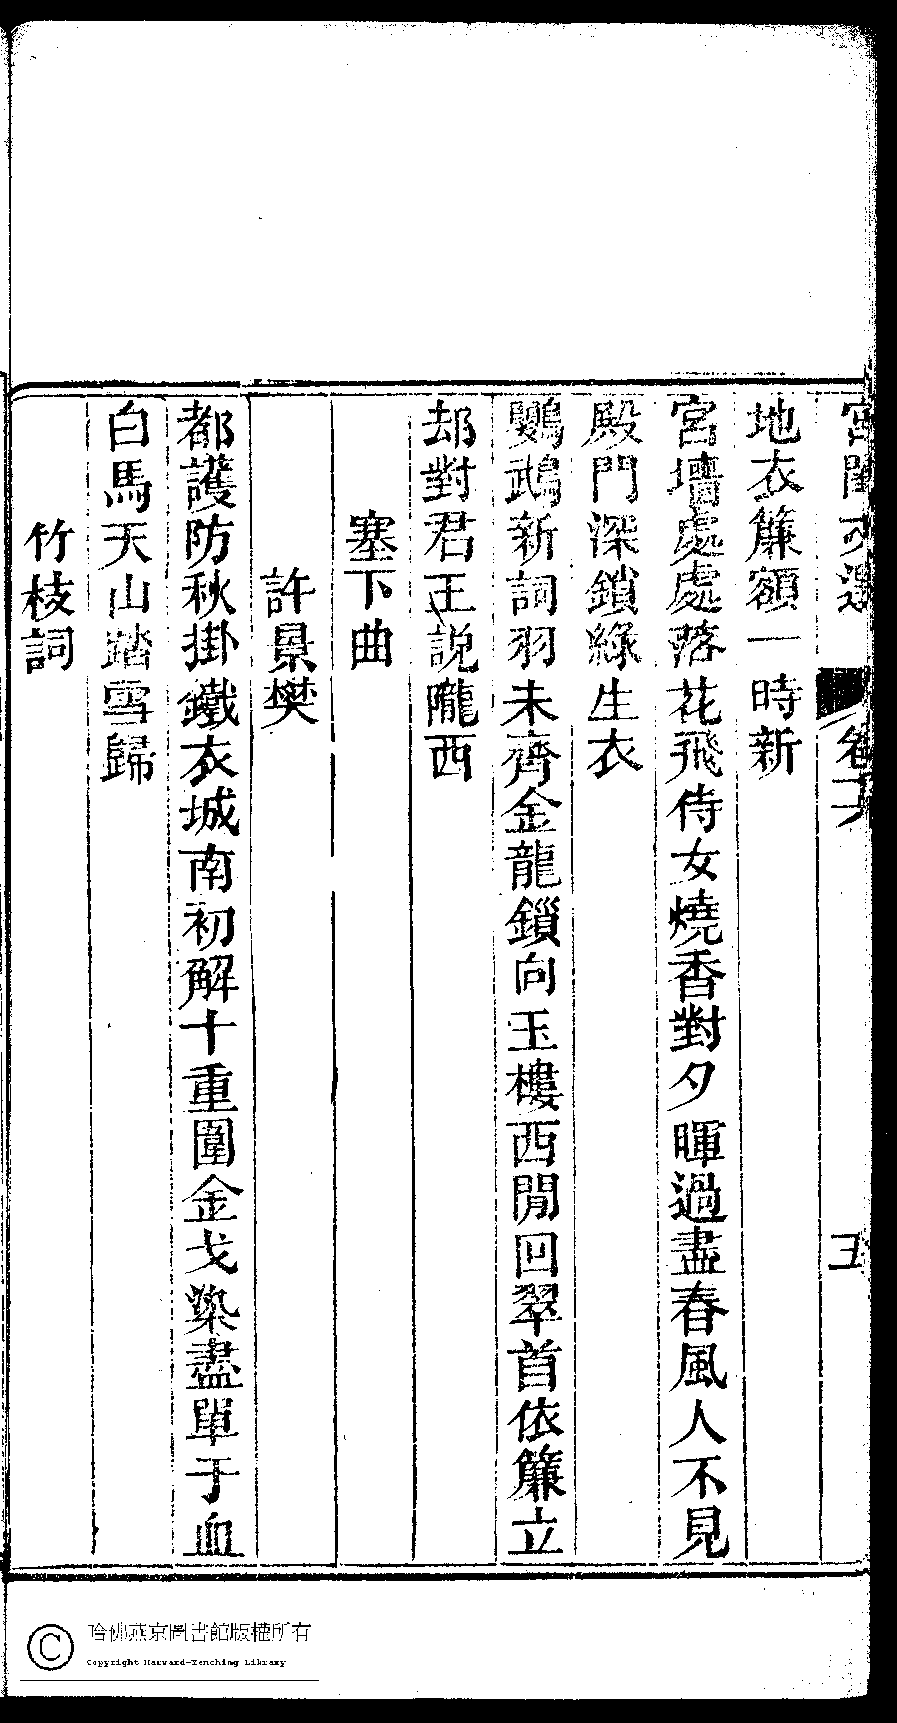 宮閨才選 卷下 五
地衣簾額一時新
宮墻處處落花飛侍女燒香對夕暉過盡春風人不見
殿門深鎖綠生衣
鸚鵡新詞羽未齊金龍鎖向玉樓西閒回翠首依簾立
却對君王說隴西
塞下曲
許景樊
都護防秋掛鐵衣城南初解十重圍金戈染盡單于血
白馬天山踏雪歸
竹枝詞
哈佛燕京圖書館版權所有
Copyright Harvard-Yenching Library